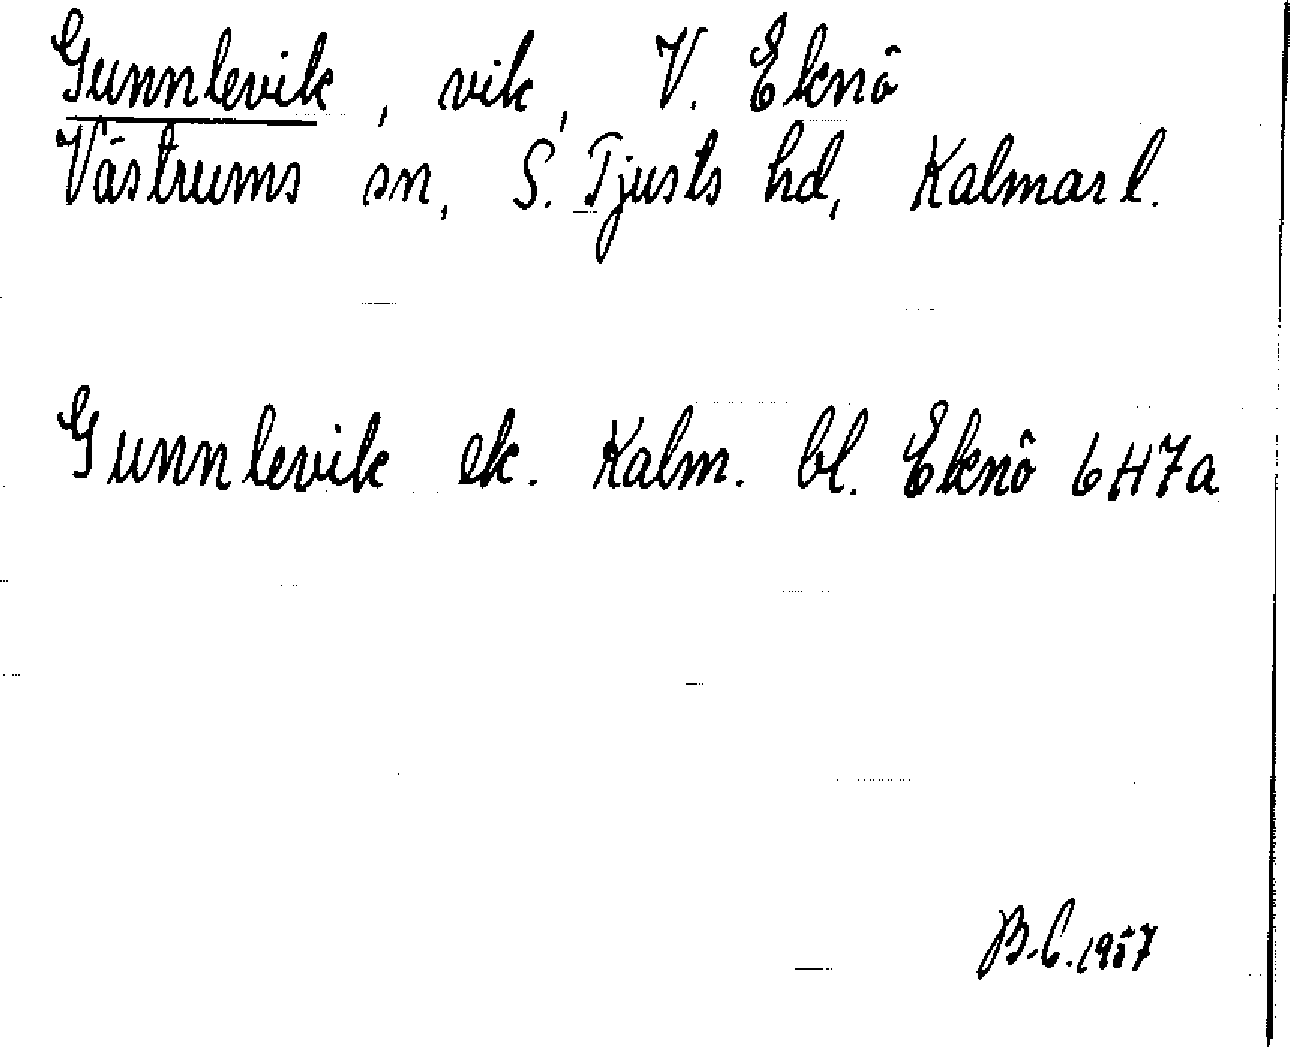 Gunnlevik, vik, V. Eknö
Västrums sn, S. Tjusts hd, Kalmar l.
Gunnlevik ek. Kalm. bl. Eknö 6H7a
B.C. 1957